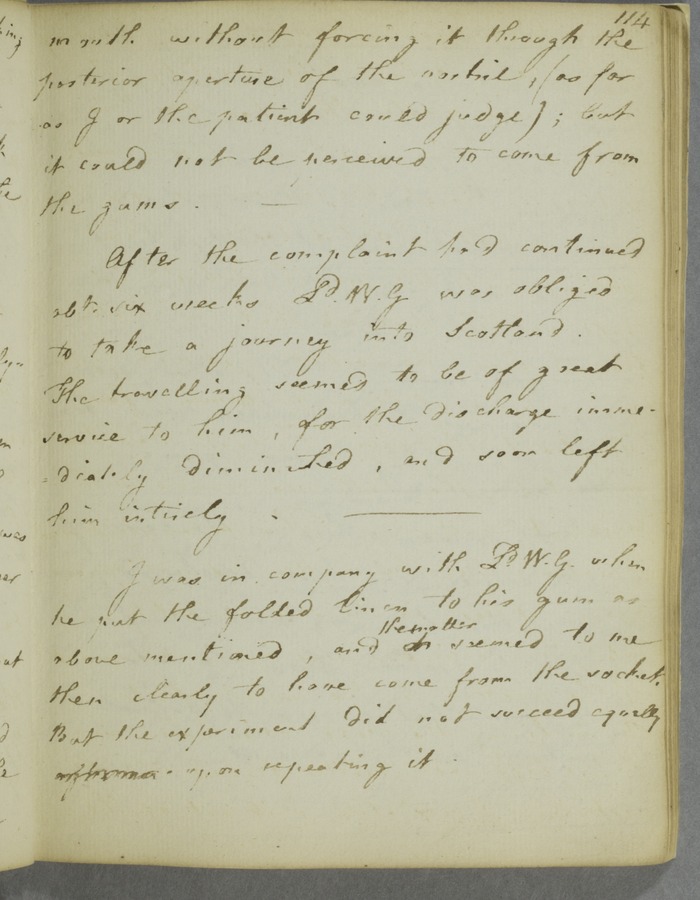 114
mouth without forcing it through the
posterior aperture of the nostril, (as far
as I or the patient could judge); but
it could not be perceived to come from
the gums.
After the complaint had continued
abt. six weeks Ld. W. G was obliged
to take a journey into Scotland.
The travelling seemed to be of great
service to him, for the discharge imme-
-diately diminished, and soon left
him intirely.
I was in company with Ld. W. G. when
he put the folded linen to his gum as
the matter
above mentioned, and seemed to me
then clearly to have come from the socket.
But the experiment did not succeed equally
upon repeating it.